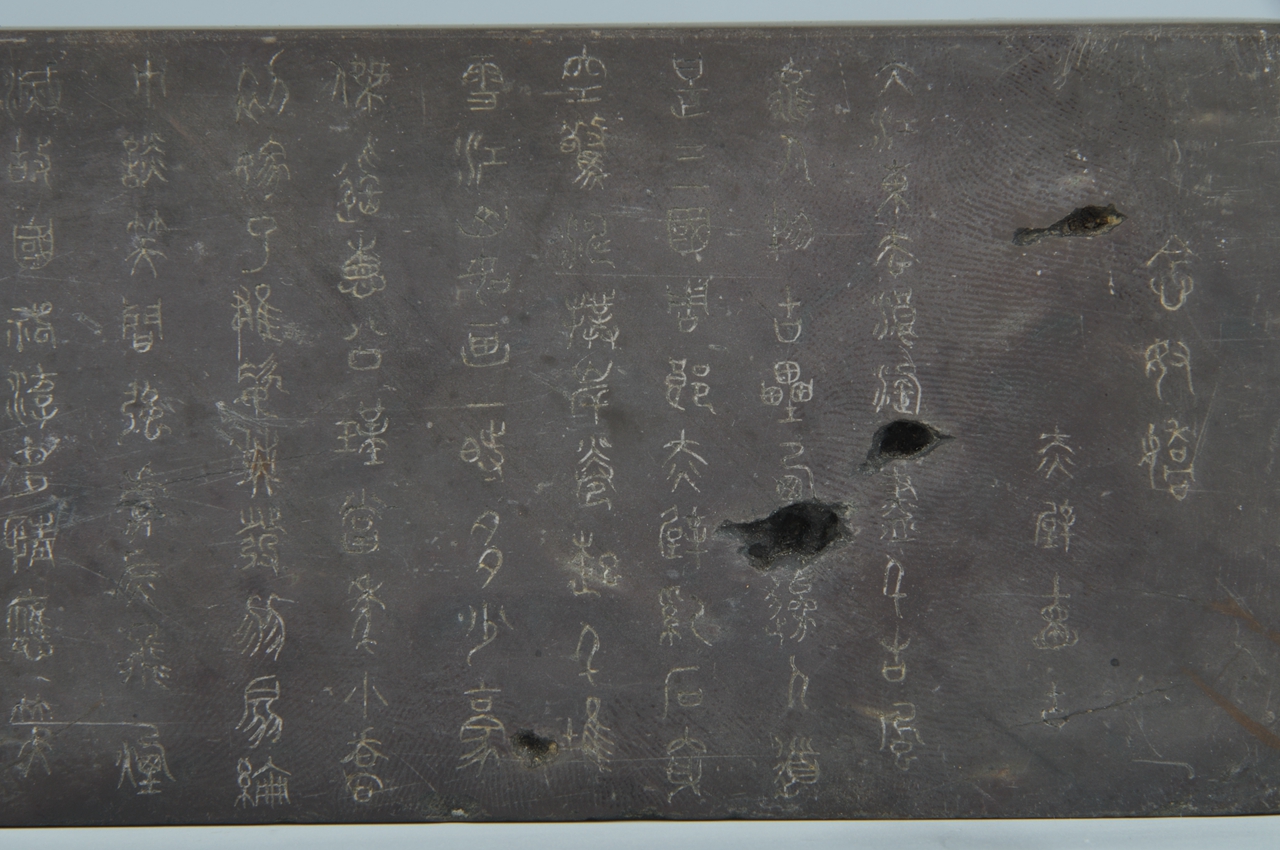 念奴嬌
赤壁懷古
大江東去浪淘盡千古風
流人物古壘西邊人道
是三國周郎赤壁亂石穿
空驚濤拍岸捲起千堆
雪江山如畫一時多少豪
傑遙想公瑾當年小喬
初嫁了雄姿英發羽扇綸
巾談笑間強虜灰飛煙
滅故國神游多情應笑